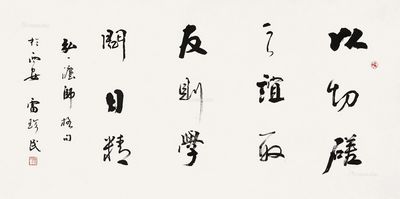 以切磋
之誼取
友則學
問日精
弘一灋師格句
於西安 雷珍民